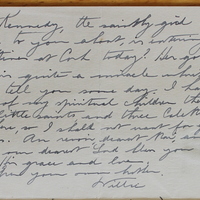 Kennedy, the saintly girl
to you about, is entering
at Cork today? Her go
is quite a miracle who
tell you some day. I ha
of my spiritual children the
little saints and three
so I shall not want for
An revoir dearest
our dearest Lord bless you
His grace and love
your own brother
Willie